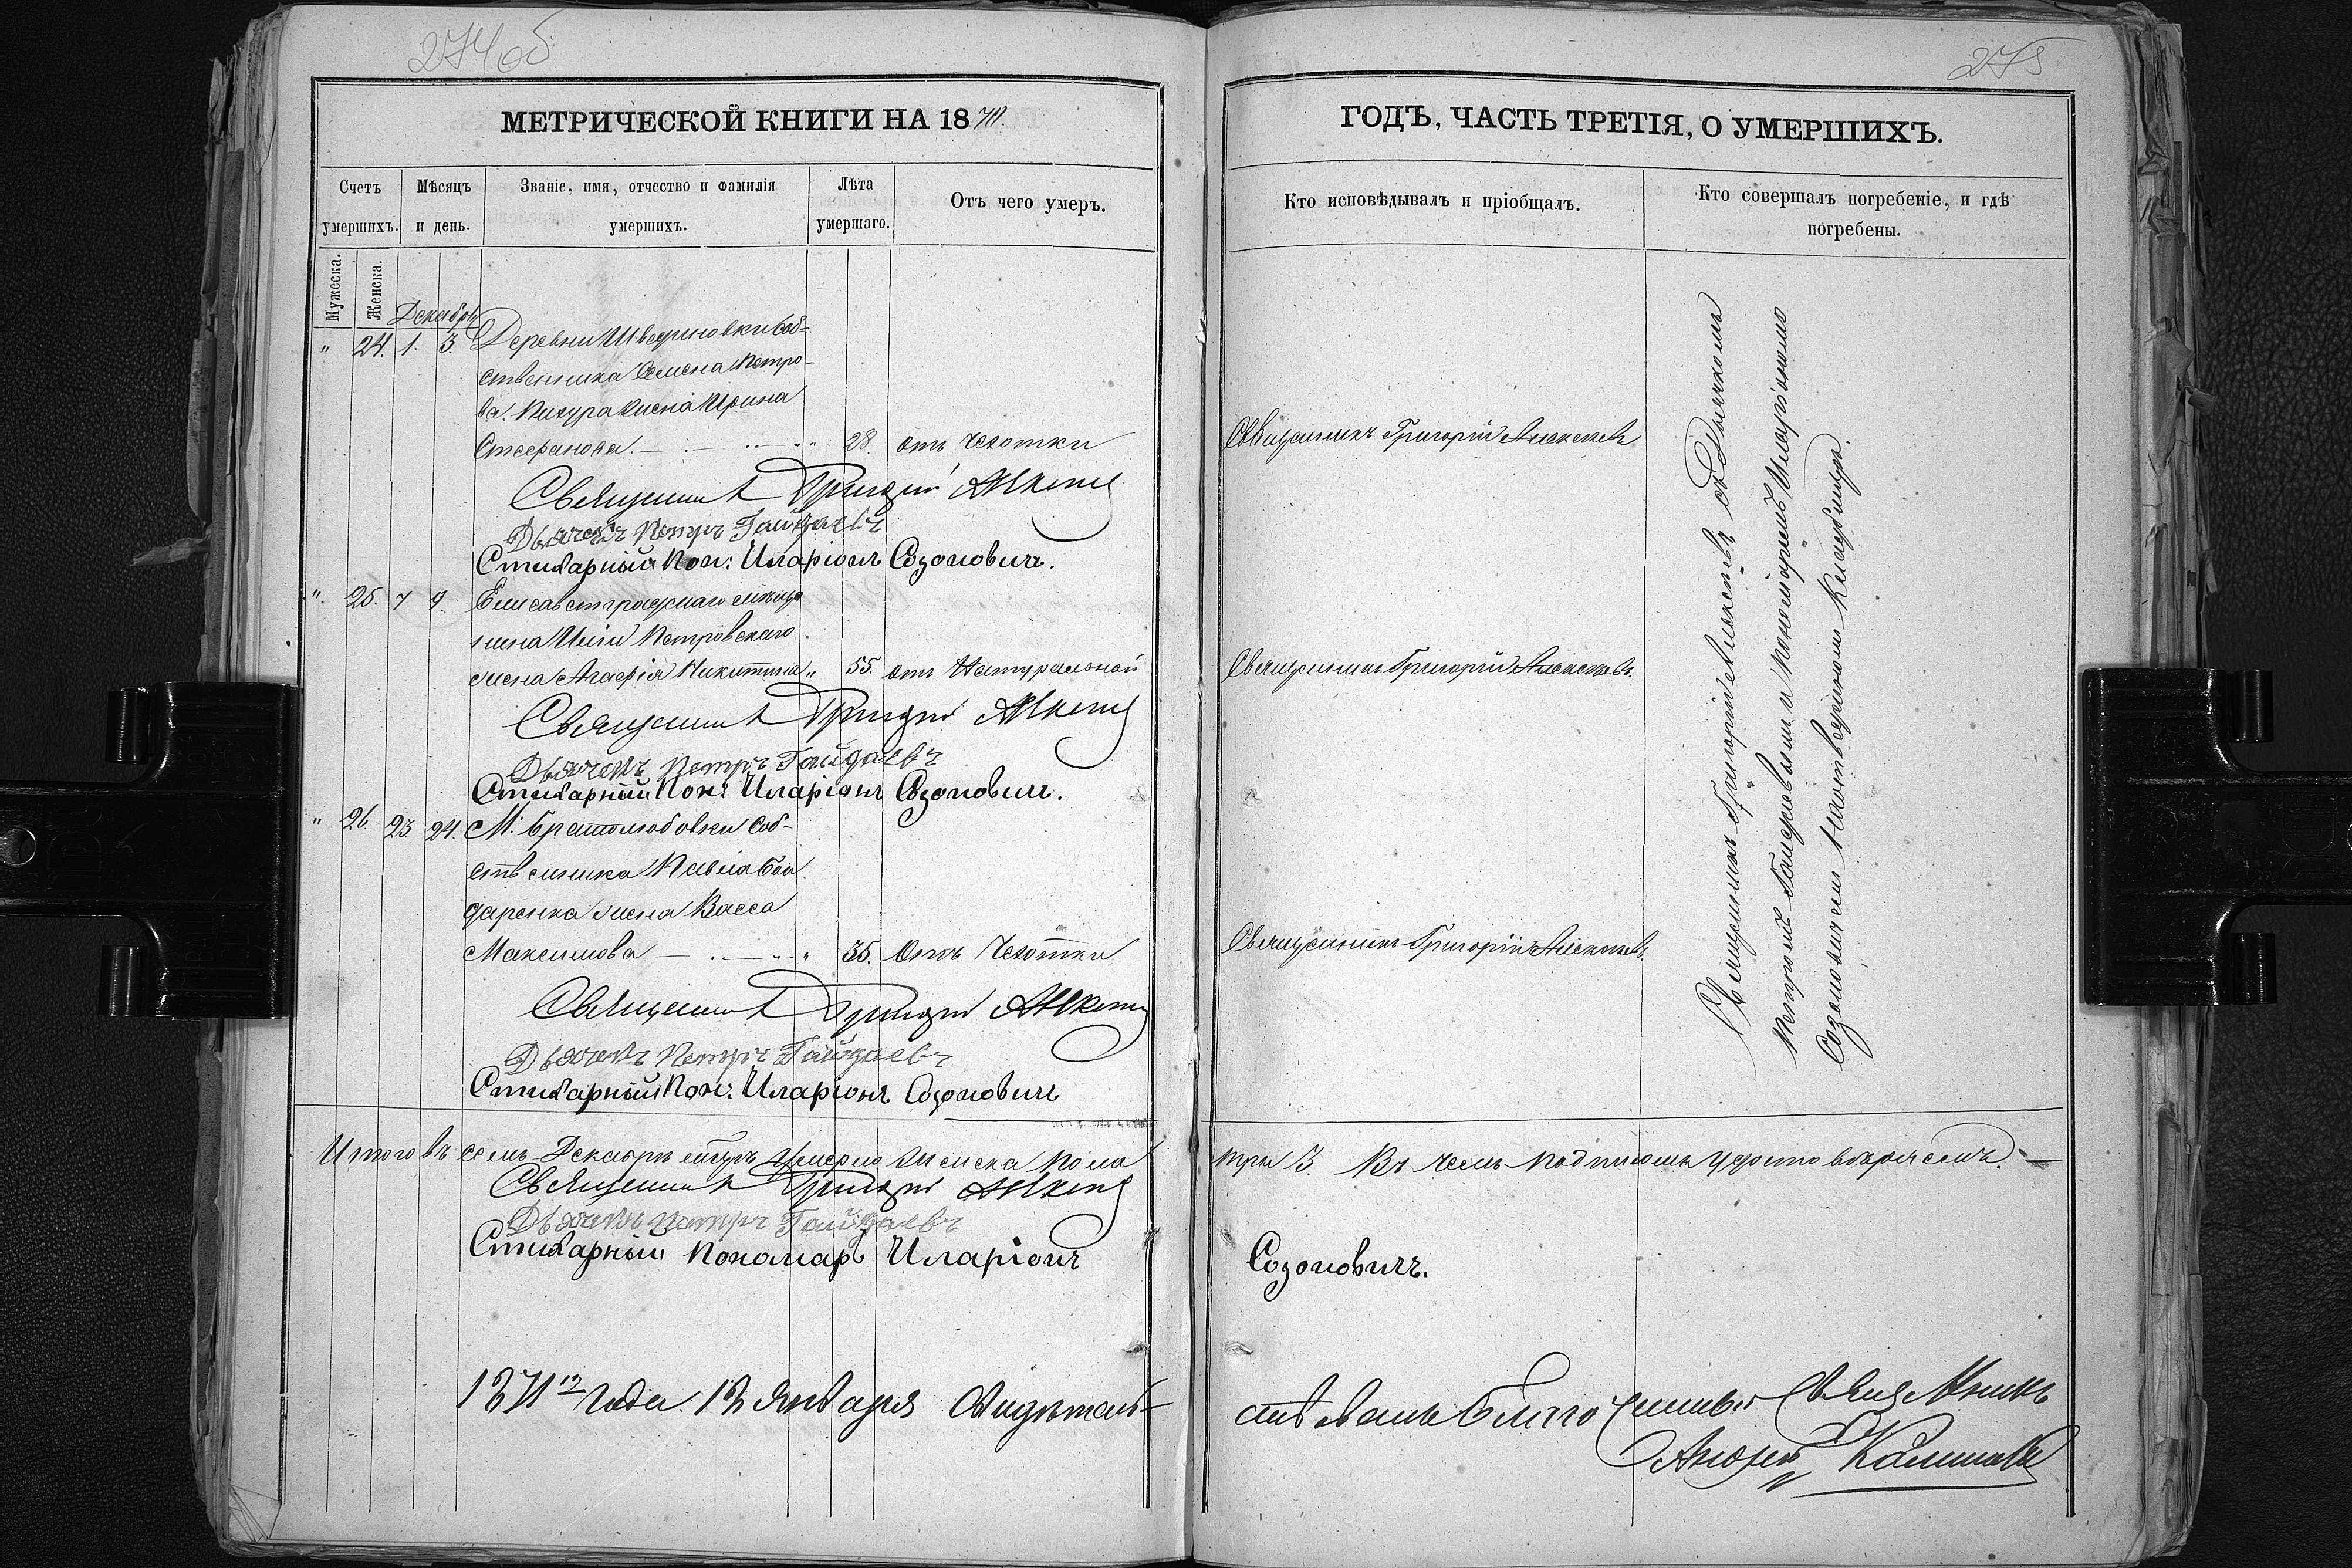 274об
МЕТРИЧЕСКОЙ КНИГИ НА 1870.
Счетъ умершихъ.
Мѣсяцъ и день.
Званіе, имя, отчество и фамилія умершихъ.
Лѣта умершаго.
Отъ чего умеръ.
Мужеска.
Женска.
Декабрь
" 24. 1. 3. Деревни Шведриновки соб-
ственника Семена Петро-
ва жена Ирина
Стефанова. 28. отъ Чехотки
Священникъ Григорій
Дьячекъ Петръ Гайдаевъ
Стихарный Пон: Иларіонъ Созоновичъ.
" 25. 7 9. Елисаветградскаго мѣща
нина Петровскаго
жена Агафія Никитина " 55. отъ Натуральной
Священникъ Григорій
Дьячекъ Петръ Гайдаевъ
Стихарный Пон: Иларіонъ Созоновичъ.
" 26. 23 24. М. Братолюбовки Соб-
ственника Павла Бон
даренка жена Васса
Максимова " 35. Отъ Чехотки
Священникъ Григорій
Дьячекъ Петръ Гайдаевъ
Стихарный Пон: Иларіонъ Созоновичъ
Итого въ семъ Декабрѣ мѣсяцѣ умерло женска пола
Священникъ Григорій
Дьячекъ Петръ Гайдаевъ
Стихарный Пономарь Иларіонъ
1871го года 12 Января Свидѣтель-
275
ГОДЪ, ЧАСТЬ ТРЕТІЯ, О УМЕРШИХЪ.
Кто исповѣдывалъ и пріобщалъ.
Кто совершалъ погребеніе, и гдѣ погребены.
Священникъ Григорій Алексѣевъ
Священникъ Григорій Алексѣевъ.
Священникъ Григорій Алексѣевъ.
Священникъ Григорій Алексѣевъ съ Дьячкомъ
Петромъ Гайдаевымъ и Пономаремъ Иларіономъ
Созоновичемъ на кладбищѣ.
три 3 Въ чемъ подписомъ
Созоновичъ.
ствовалъ Благочинный Священникъ
Андрей